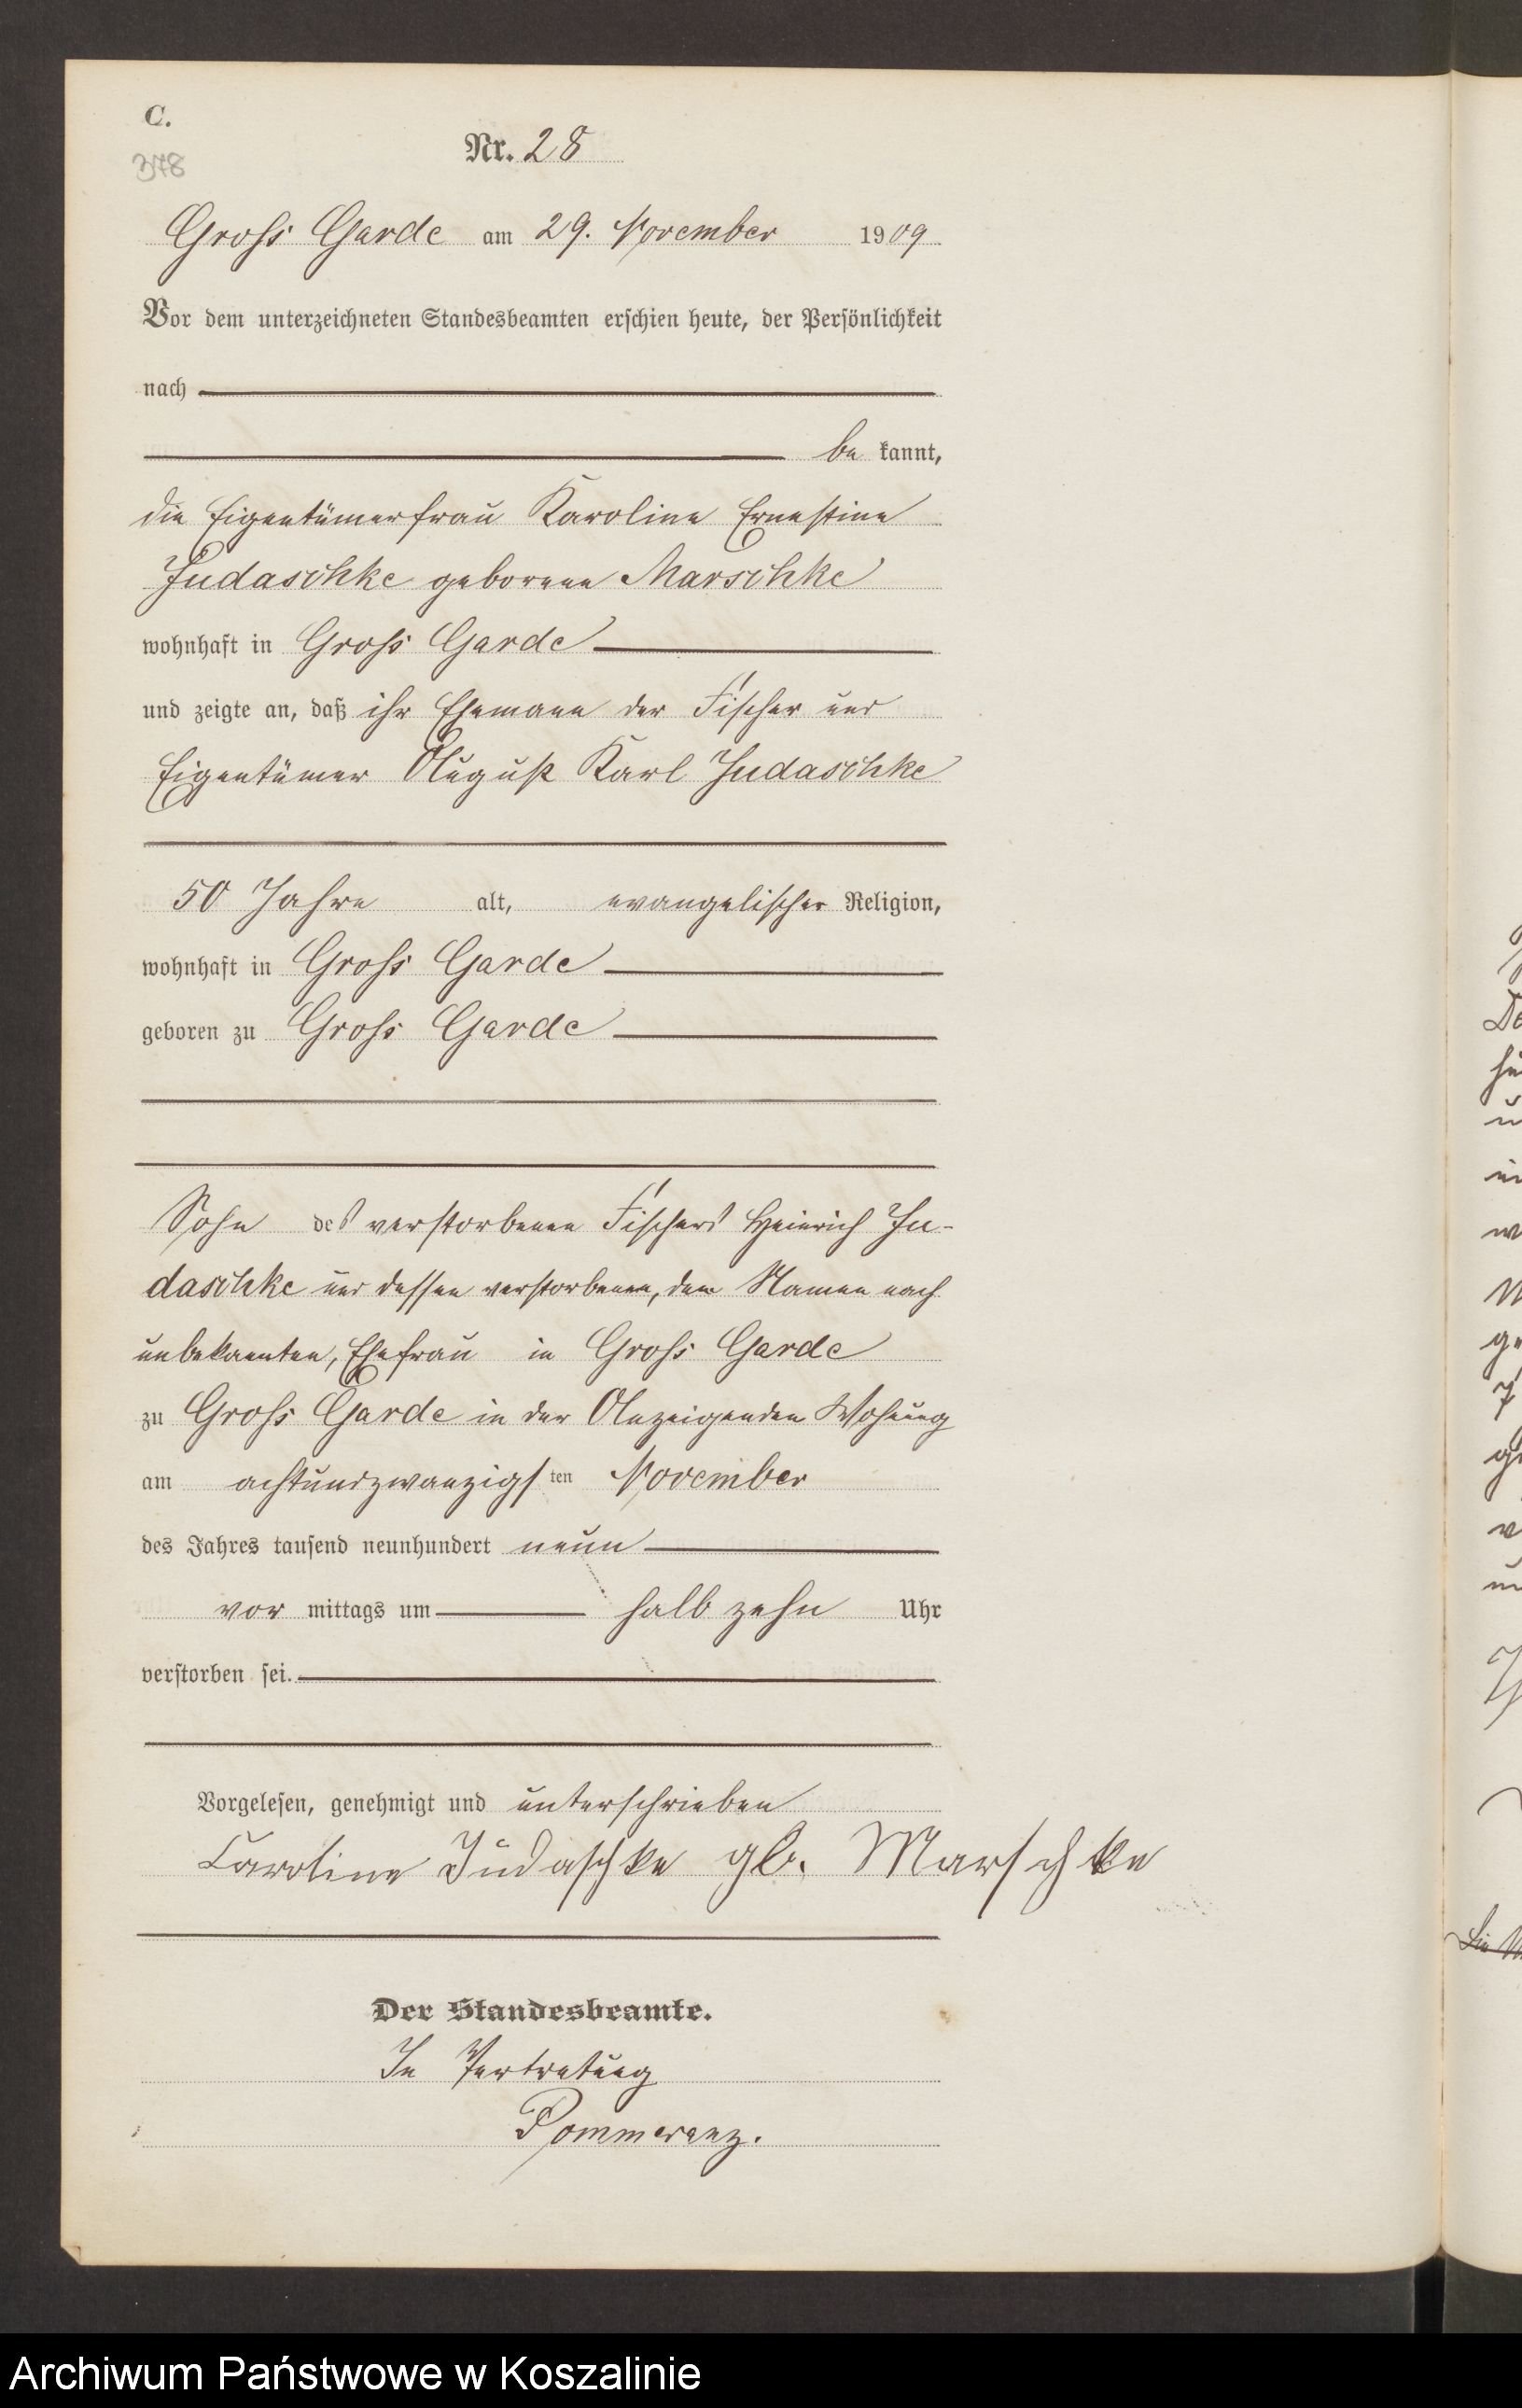 C.
378
Nr. 28
Gross Garde am 29. November 1909
Vor dem unterzeichneten Standesbeamten erschien heute, der Persönlichkeit
nach
be kannt,
die Eigentümerfrau Karoline Ernestine
Judaschke geborene Marschke
wohnhaft in Gross Garde
und zeigte an, daß ihr Ehemann der Fischer und
Eigentümer August Karl Judaschke
50 Jahre alt, evangelischer Religion,
wohnhaft in Gross Garde
geboren zu Gross Garde
Sohn des verstorbenen Fischers Heinrich Ju-
daschke und dessen verstorbenen, dem Namen nach
unbekannten, Ehefrau in Gross Garde
zu Gross Garde in der Anzeigenden Wohnung
am achtundzwanzigsten November
des Jahres tausend neunhundert neun
vor mittags um halb zehn Uhr
verstorben sei.
Vorgelesen, genehmigt und unterschrieben
Caroline Judaschke gb. Marschke
Der Standesbeamte.
In Vertretung
Pommerenz.
Archiwum Państwowe w Koszalinie